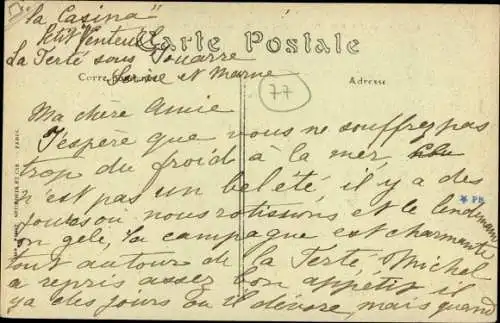 "La Casina"
Petit Venteuil
La Ferté sous Jouarre
Seine et Marne
Carte Postale
Correspondance
Adresse
77
Ma chère Amie
J'espère que vous ne souffrez pas
trop du froid à la mer,
n'est pas un bel été, il y a des
jours où nous rotissons et le lendemain
on gèle, la campagne est charmante
tout autour de la Ferté. Michel
a repris assez bon appétit il
y a des jours où il dévore, mais quand
PB
PARIS